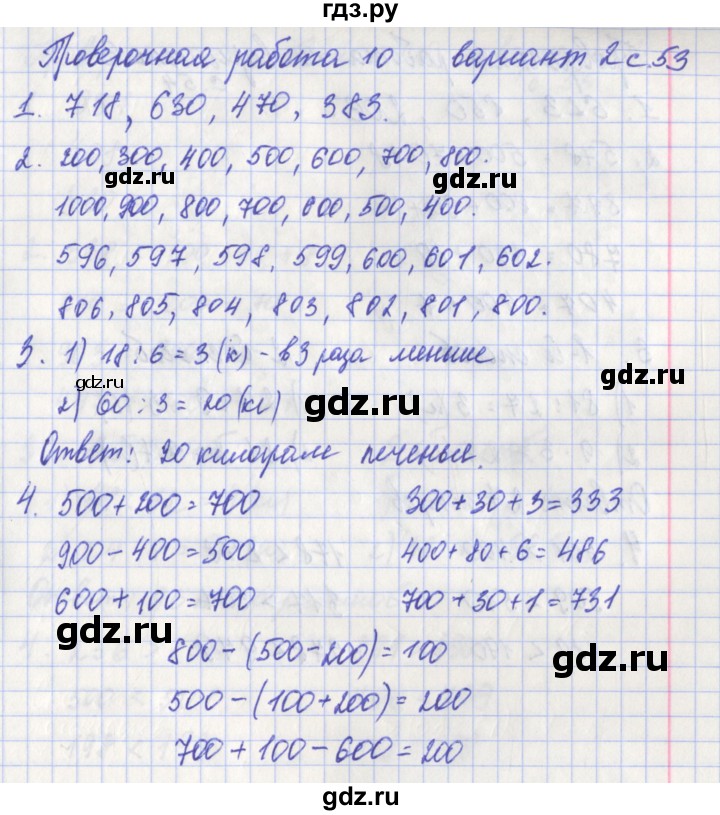 гдз.ру
Проверочная работа 10 вариант 2 с.53
1. 718, 630, 470, 383.
2. 200, 300, 400, 500, 600, 700, 800.
gdz.ru
gdz.ru
1000, 900, 800, 700, 600, 500, 400.
596, 597, 598, 599, 600, 601, 602.
gdz.ru
806, 805, 804, 803, 802, 801, 800.
3. 1) 18 : 6 = 3 (к) - в 3 раза меньше
gdz.ru
gdz.ru
2) 60 : 3 = 20 (кг)
gdz.ru
Ответ: 20 килограмм печенья.
4. 500 + 200 = 700 300 + 30 + 3 = 333
gdz.ru
900 - 400 = 500 400 + 80 + 6 = 486
600 + 100 = 700 700 + 30 + 1 = 731
gdz.ru
800 - (500 - 200) = 100
gdz.ru
500 - (100 + 200) = 200
gdz.ru
700 + 100 - 600 = 200
gdz.ru